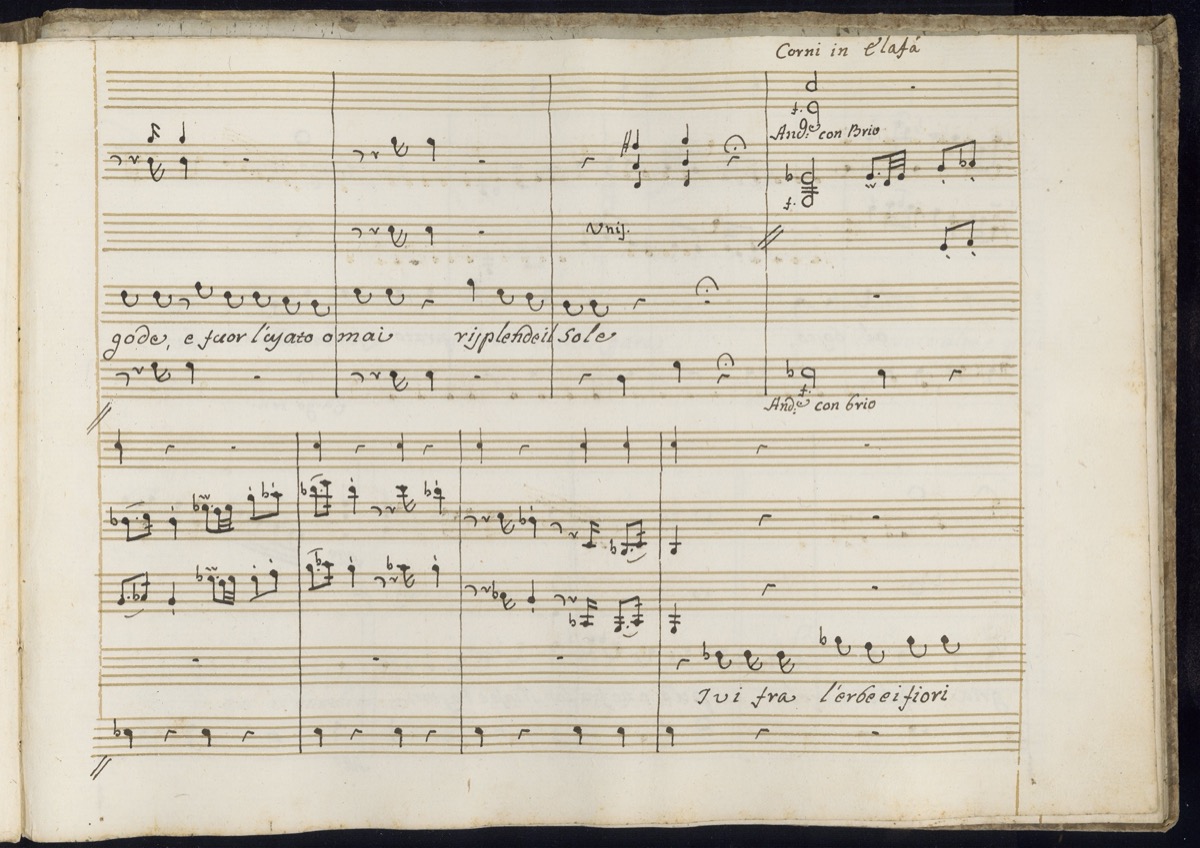 Corni in Elafá
And.e con Brio
f.
f.
Unis.
gode, e fuor l'usato omai risplende il Sole
f.
And.e con brio
Ivi fra l'erbe ei fiori